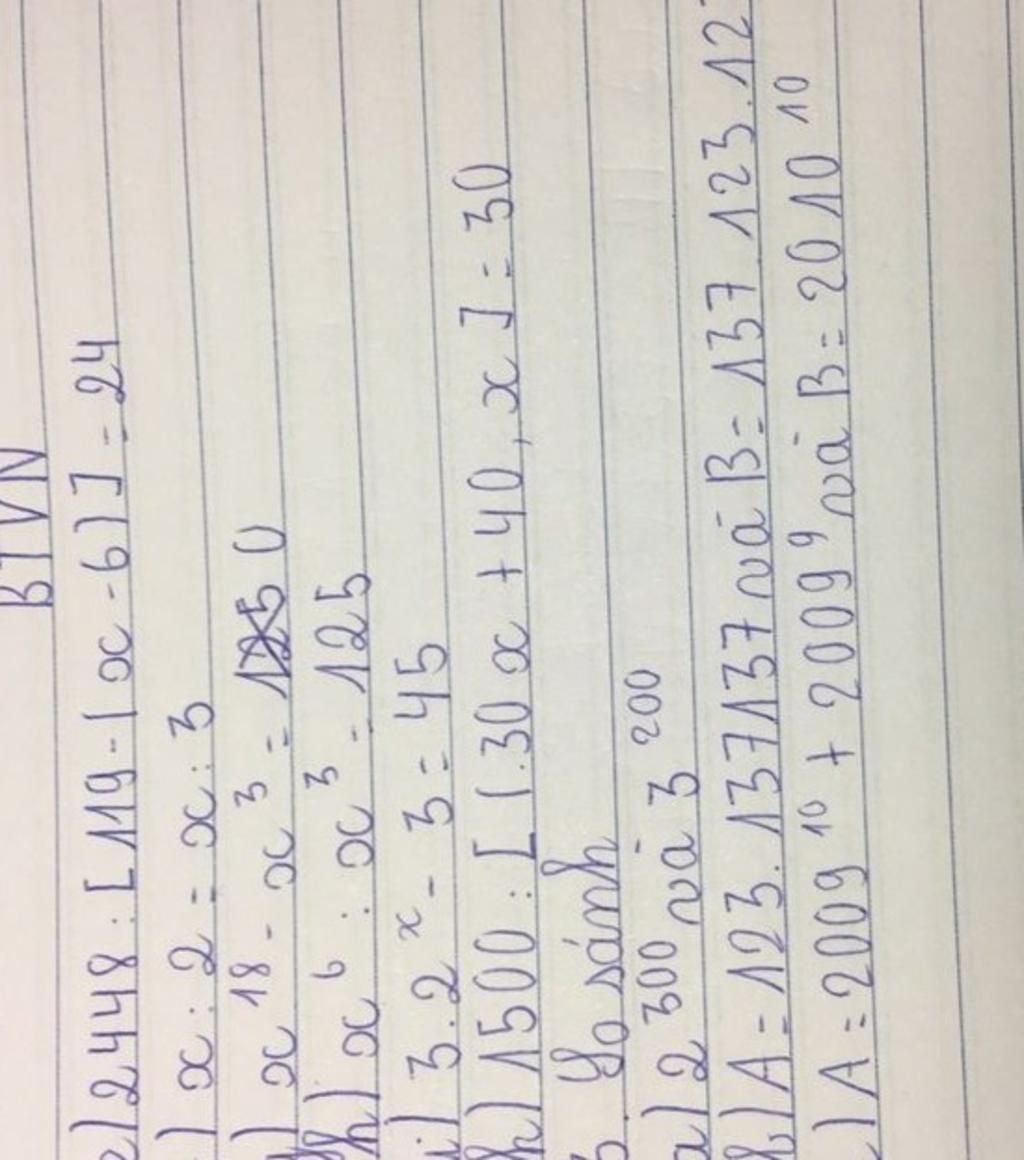 BTVN
e) 2448 : [ 119 - ( x - 6 ) ] = 24
) x : 2 = x : 3
) x¹⁸ - x³ = 0
h) x⁶ : x³ = 125
i) 3.2ˣ - 3 = 45
k) 1500 : [ (30x + 40) : x ] = 30
3. So sánh
a) 2³⁰⁰ và 3²⁰⁰
b) A = 123.137137 và B = 137.123.12
c) A = 2009¹⁰ + 2009⁹ và B = 2010¹⁰